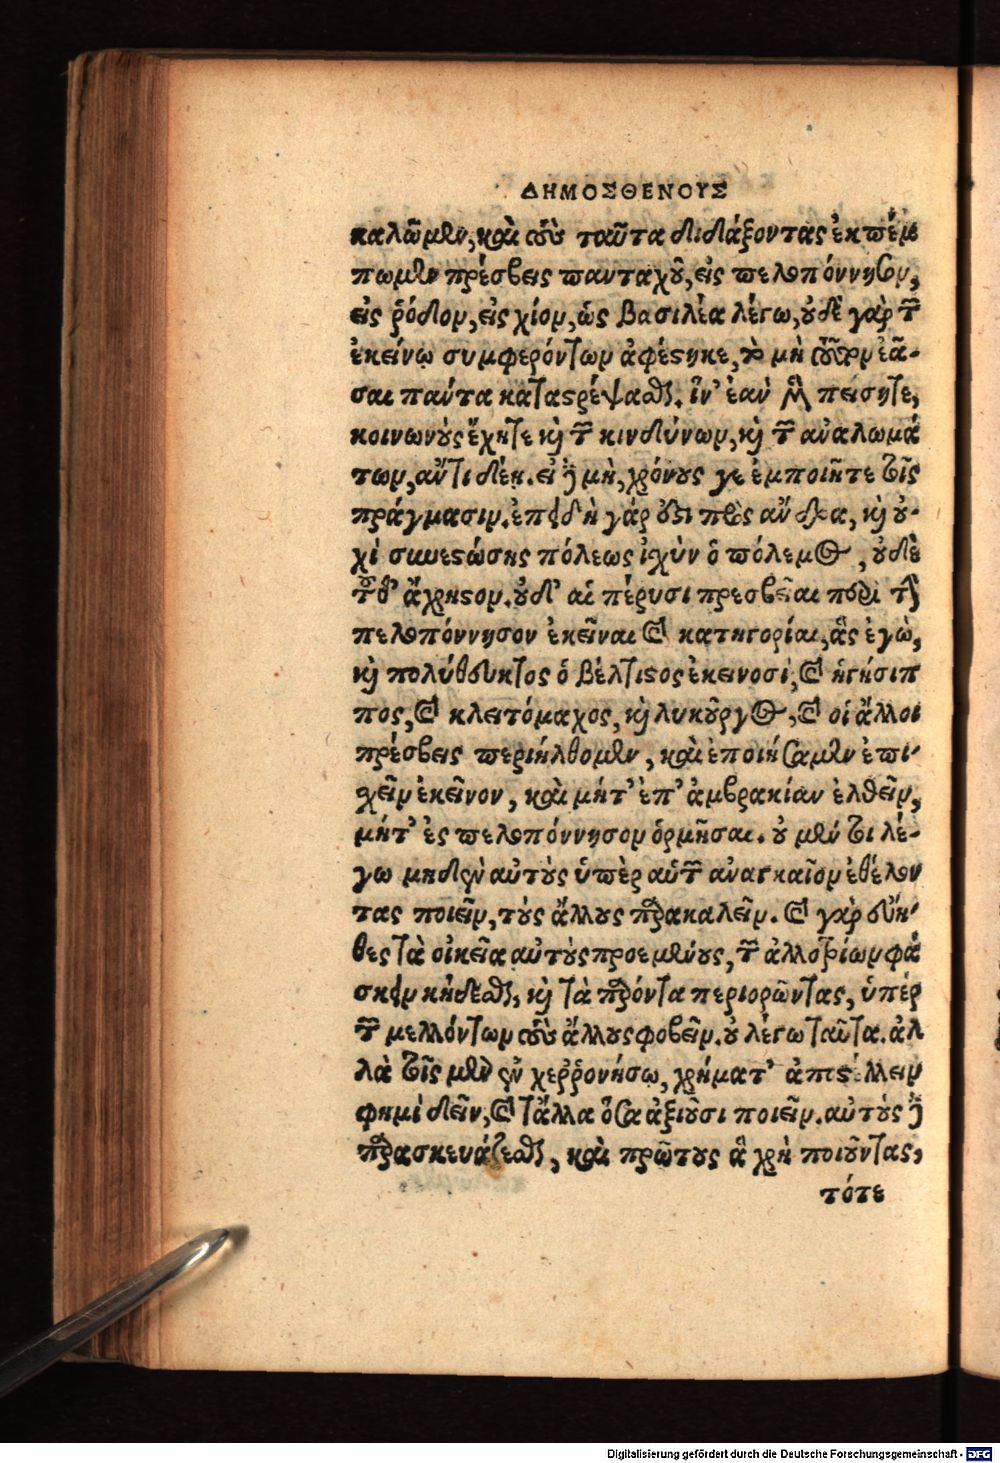 ΔΗΜΟΣΘΕΝΟΥΣ
καλῶμεν, καὶ τοὺς ταῦτα διδάξοντας ἐκπέμ
πωμεν πρέσβεις πανταχοῦ, εἰς πελοπόννησον,
εἰς ῥόδον, εἰς χίον, ὡς βασιλέα λέγω, οὐδὲ γὰρ τῶν
ἐκείνῳ συμφερόντων ἀφέστηκε, τὸ μὴ τοῦτον ἐᾶ-
σαι πάντα καταστρέψασθαι. ἵν' ἐὰν μὲν πείσητε,
κοινωνοὺς ἔχητε καὶ τῶν κινδύνων, καὶ τῶν ἀναλωμά
των, ἄντι δέῃ. εἰ δὲ μὴ, χρόνους γε ἐμποιῆτε τοῖς
πράγμασιν. ἐπειδὴ γάρ ἐστι πρὸς ἄνδρα, καὶ οὐ-
χὶ συνεστώσης πόλεως ἰχὺν ὁ πόλεμος, οὐδὲ
τοῦτ' ἄχρηστον. οὐδ' αἱ πέρυσι πρεσβεῖαι περὶ τὴν
πελοπόννησον ἐκεῖναι καὶ κατηγορίαι, ἃς ἐγὼ,
καὶ πολύευκτος ὁ βέλτιστος ἐκεινοσὶ, καὶ ἡγήσιπ
πος, καὶ κλειτόμαχος, καὶ λυκοῦργος, καὶ οἱ ἄλλοι
πρέσβεις περιήλθομεν, καὶ ἐποιήσαμεν ἐπι-
χεῖν ἐκεῖνον, καὶ μήτ' ἐπ' ἀμβρακίαν ἐλθεῖν,
μήτ' ἐς πελοπόννησον ὁρμῆσαι. οὐ μέν τοι λέ-
γω μηδὲν αὐτοὺς ὑπὲρ αὑτῶν ἀναγκαῖον ἐθέλον
τας ποιεῖν, τοὺς ἄλλους παρακαλεῖν. καὶ γὰρ εὔη-
θες τὰ οἰκεῖα αὐτοὺς προεμένους, τῶν ἀλλοτρίων φά
σκειν κήδεσθαι, καὶ τὰ παρόντα περιορῶντας, ὑπὲρ
τῶν μελλόντων τοὺς ἄλλους φοβεῖν. οὐ λέγω ταῦτα. ἀλ
λὰ τοῖς μὲν ἐν χερρονήσῳ, χρήματ' ἀποστέλλειν
φημὶ δεῖν, καὶ τἄλλα ὅσα ἀξιοῦσι ποιεῖν. αὐτοὺς δὲ
παρασκευάζεσθαι, καὶ πρώτους ἃ χρὴ ποιοῦντας,
τότε
Digitalisierung gefördert durch die Deutsche Forschungsgemeinschaft - DFG